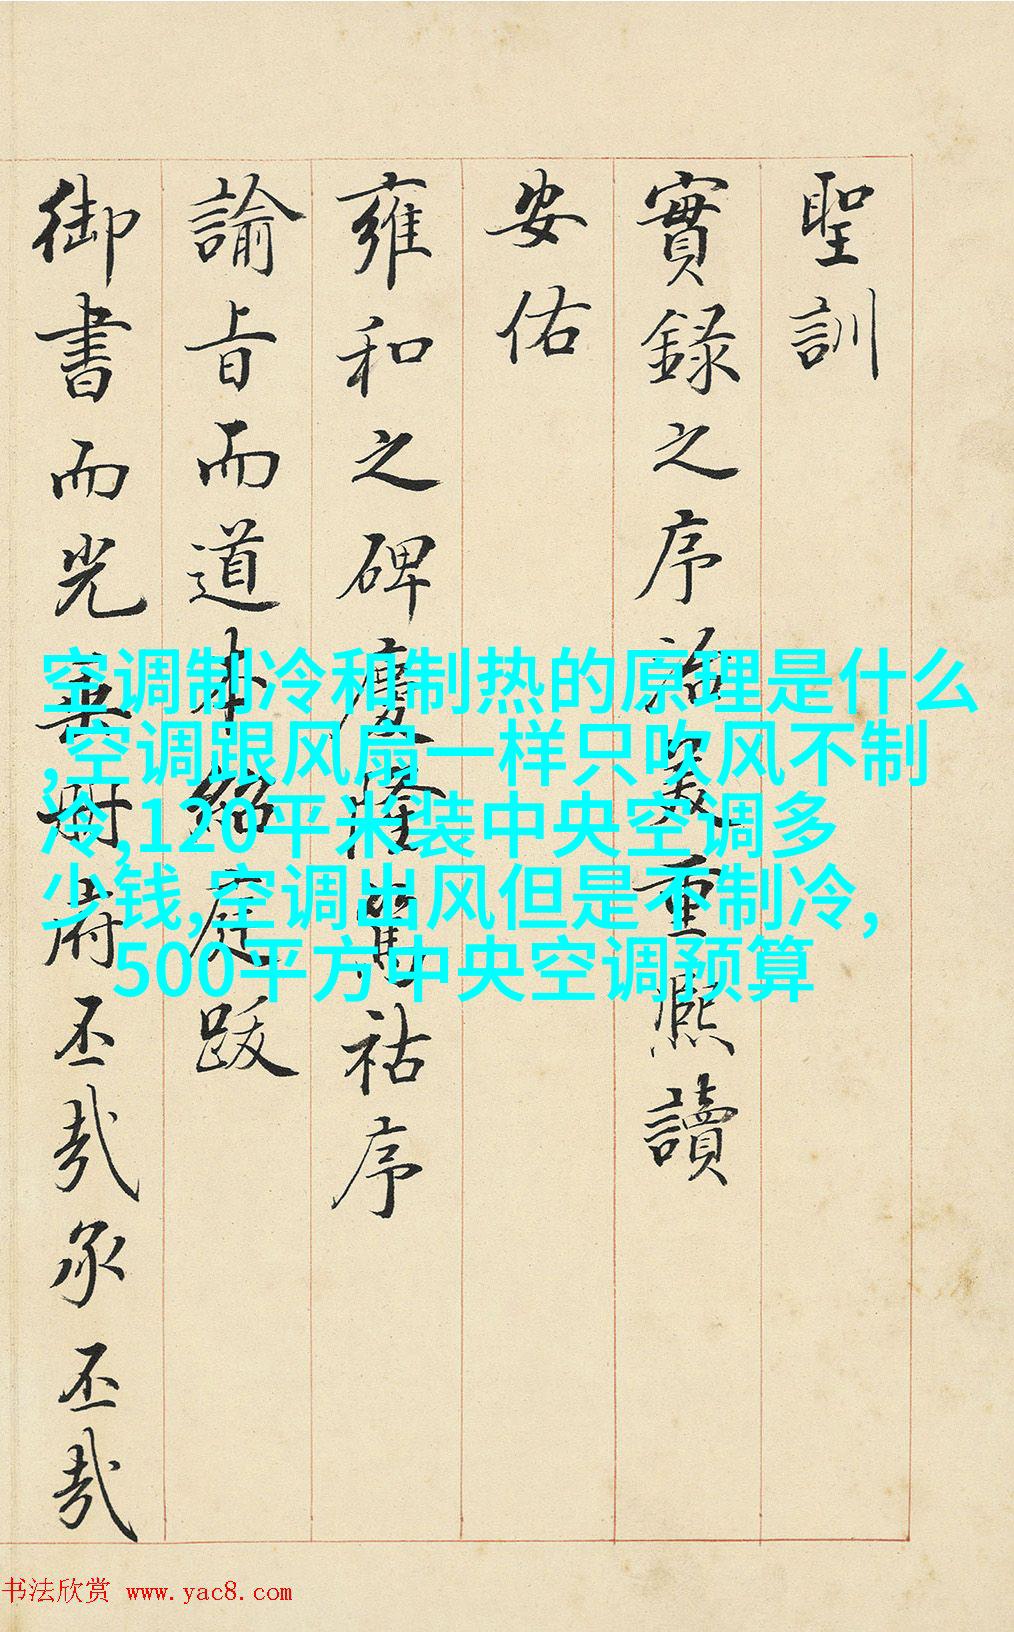 聖訓
實錄之序詒羙重熈讀
安佑
雍和之碑慶隆舊祜序
諭旨而道本紹庭跋
御書而光垂册府丕㢤承丕㢤
空调制冷和制热的原理是什么
,空调跟风扇一样只吹风不制
冷,120平米装中央空调多
少钱,空调出风但是不制冷,
500平方中央空调预算
书法欣赏 www.yac8.com